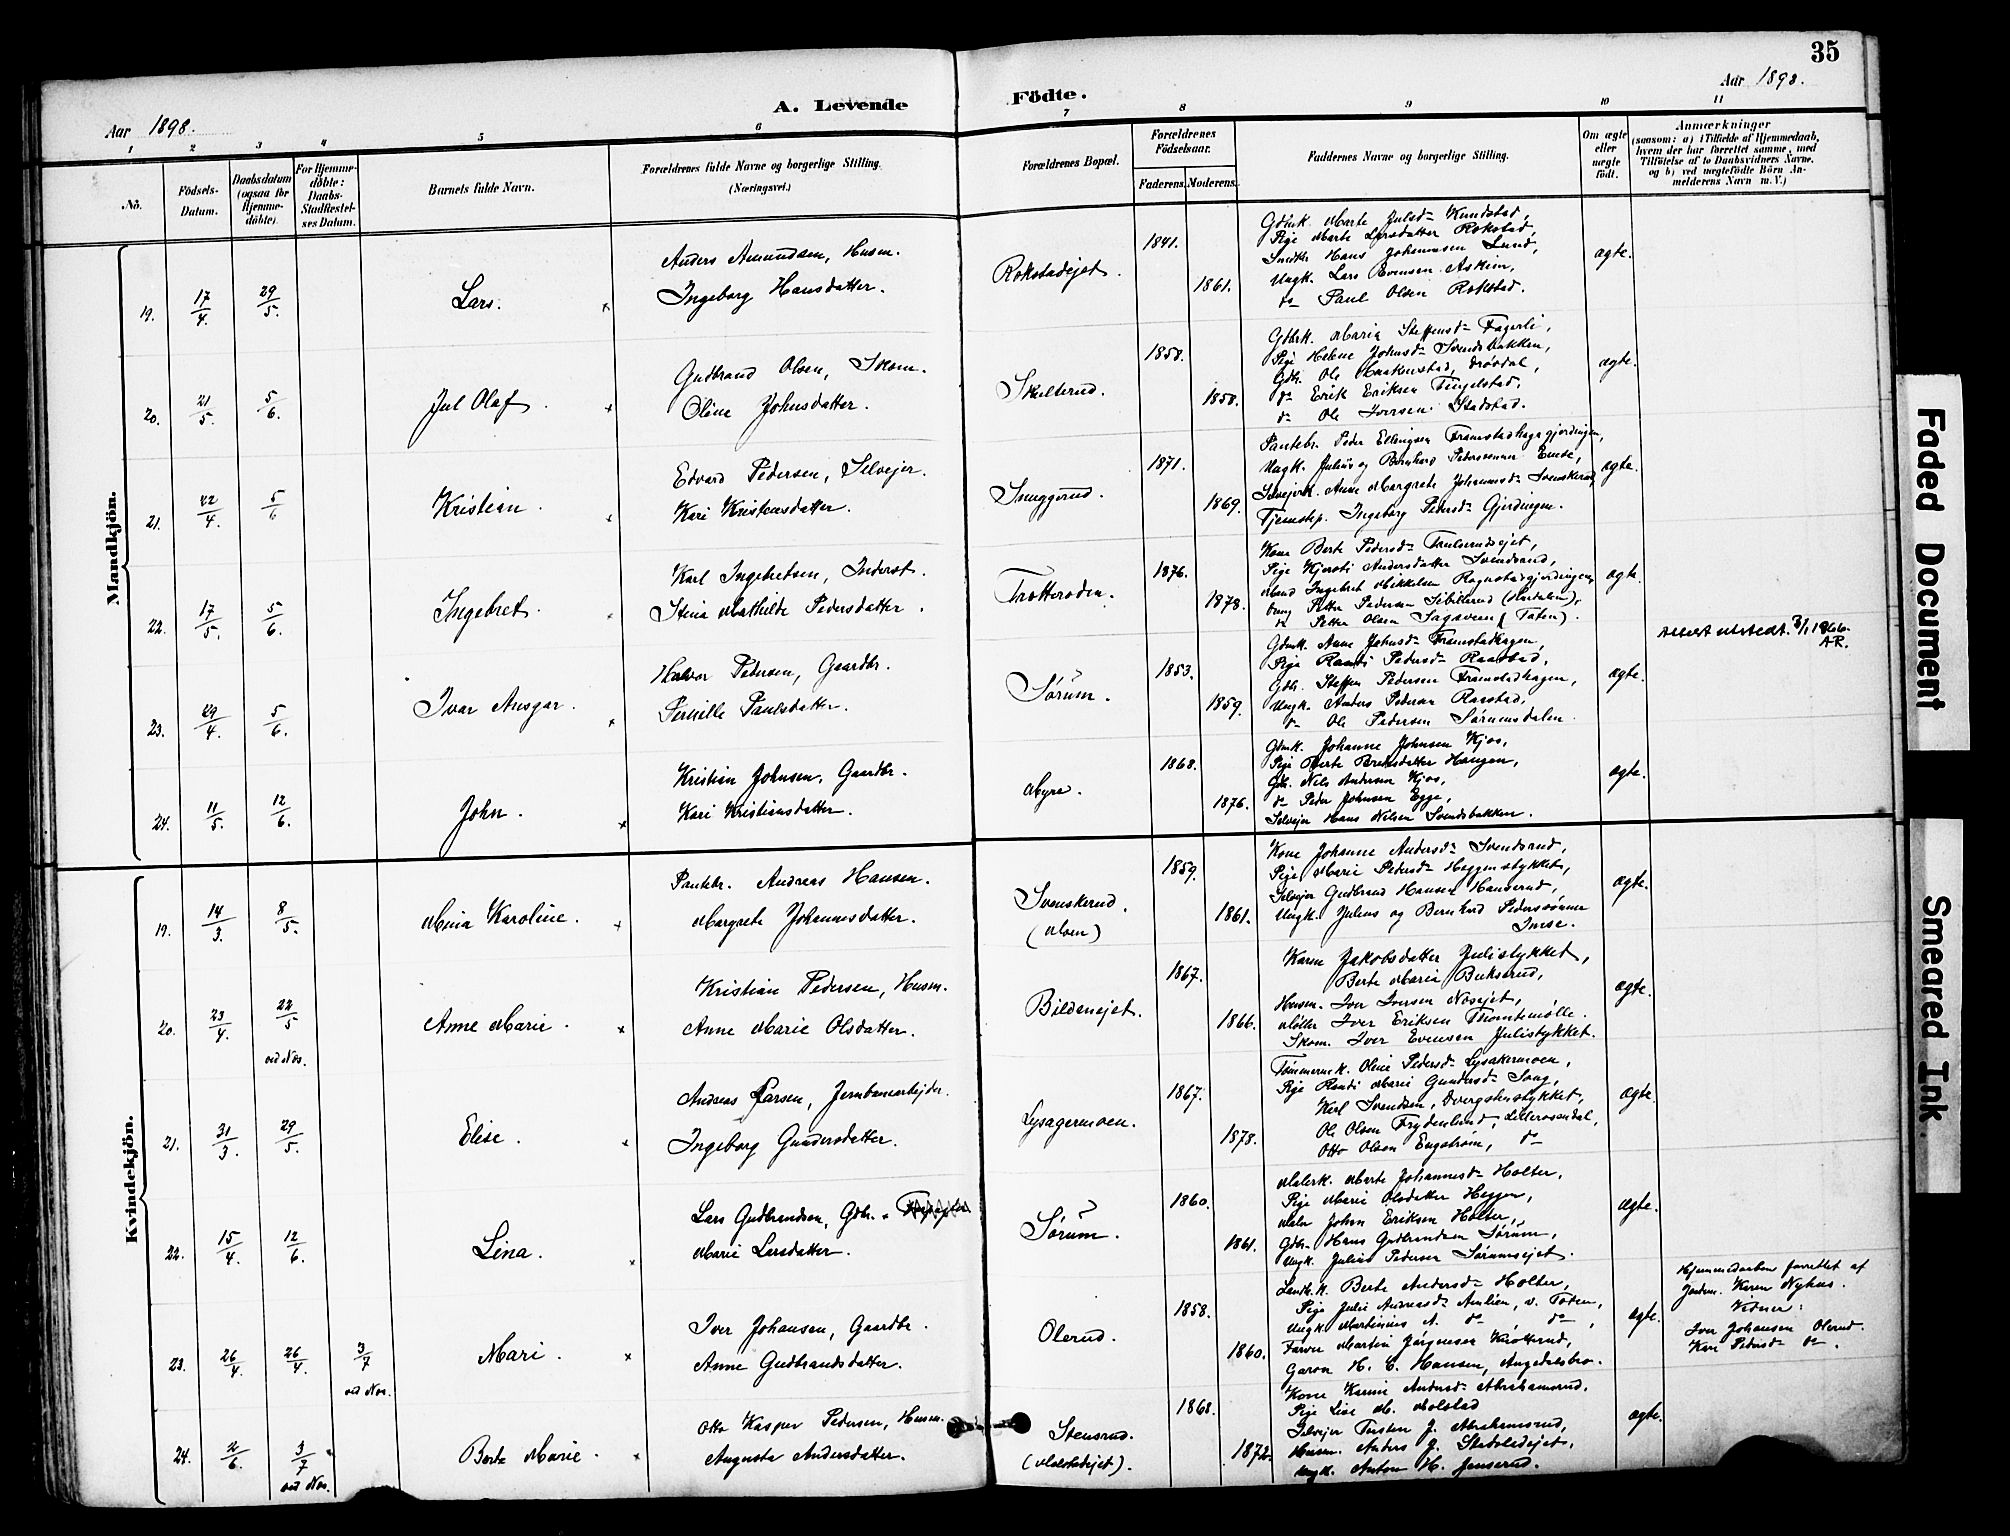 35
Aar 1898.
A. Levende Födte.
Aar 1898.
1 2 3 4 5 6 7 8 9 10 11
No.
Födsels-Datum.
Daabsdatum (ogsaa for Hjemme-döbte).
For Hjemme-döbte: Daabs-Stadfæstel-ses Datum.
Barnets fulde Navn.
Forældrenes fulde Navne og borgerlige Stilling.
(Næringsvei.)
Forældrenes Bopæl.
Forældrenes Födselsaar.
Faderens. Moderens.
Faddernes Navne og borgerlige Stilling.
Om ægte eller uægte födt.
Anmærkninger
(saasom: a) i Tilfælde af Hjemmedaab,
hvem der har forrettet samme, med
Tilföielse af to Daabsvidners Navne,
og b) ved uægtefödte Börn An-
melderens Navn m. V.)
Mandkjön.
19. 17/4. 29/5. Lars.
Anders Amundsen, Husm.
Ingeborg Hansdatter.
Rokstadejet. 1841. 1861.
Gdmk. Marte Julsd- Kundstad,
Pige Marte Larsdatter Rokstad,
Smedm. Hans Johannesen Lund,
Ungk. Lars Evensen Askim,
do Paul Olsen Rokstad.
ægte.
20. 21/5. 5/6. Jul Olaf.
Gudbrand Olsen, Skom.
Oline Johnsdatter.
Skulterud. 1850. 1850.
Gdbrk. Maria Steffensd- Fagerli,
Pige Helene Johnsd- Svendsbakken,
Gdb. Ole Haakenstad,
do Erik Eriksen Tingelstad,
do Ole Iversen Stadstad.
ægte.
21. 22/4. 5/6 Kristian.
Edvard Pedersen, Selvejer.
Kari Kristensdatter.
Snuggerud. 1871. 1869.
Pantebr. Peder Ellingsen Framstadhagegjordingen,
Ungk. Julius og Bernhard Pederssønner Emse,
Selvejerk. Anne Margrete Johannesd- Svenskerud,
Tjenestep. Ingeborg Pedersd- Gjerdingen.
ægte.
22. 17/5. 5/6. Ingebret.
Karl Ingebretsen, Inderst.
Stina Mathilde Pedersdatter.
Trotteroden. 1876. 1878.
Kone Berte Pedersd- Faulserudsejet,
Pige Kjersti Andersdatter Svendsrud,
Mand Ingebret Mikkelsen Rognstadgjerdingen,
Ung Petter Pedersen Sebillerud (Hurdalen),
do Petter Olsen Sagaveen (Toten).
ægte.
23. 29/4. 5/6. Ivar Ansgar.
Halvor Pedersen, Gaardbr.
Pernille Paulsdatter.
Sørum. 1853. 1859.
Gdmk. Anne Johnsd- Framstadhagen,
Pige Randi Pedersd- Raastad,
Gdb. Steffen Pedersen Framstadhagen,
Ungk. Anders Pedersen Raastad,
do Ole Pedersen Sørumsdalen.
ægte.
Attest utstedt. 3/1 1966.
AR.
24. 11/5. 12/6. John.
Kristian Johnsen, Gaardbr.
Kari Kristiansdatter.
Myre. 1868. 1876.
Gdmk. Johanne Johnsen Kjos,
Pige Berte Berntsdatter Haugen,
Gdb. Nils Andersen Kjos,
do Peder Johnsen Egge,
Selvejer Hans Nilsen Svendsbakken.
ægte.
Kvindekjön.
19. 14/3. 8/5. Mina Karoline.
Pantebr. Andreas Hansen.
Margrete Johannesdatter.
Svenskerud.
(Moen) 1859. 1861.
Kone Johanne Andersd- Svendsrud,
Pige Marie Pedersd- Heggenstykket,
Selvejer Gudbrand Hansen Hanserud,
Ungk. Julius og Bernhard Pederssønner
Imse.
ægte.
20. 23/4. 22/5 ved Nos. Anne Marie.
Kristian Pedersen, Husm.
Anne Marie Olsdatter.
Bildenejet. 1867. 1866.
Karen Jakobsdatter Julistykket,
Berte Marie Bukserud,
Husm. Iver Iversen Nosejet,
Møller Iver Eriksen Thomtemølle.
Skom. Iver Evensen Julistykket.
ægte.
21. 31/3. 29/5. Elise.
Andreas Larsen, Jernbanearbejder.
Ingeborg Gundersdatter.
Lysagermoen. 1867. 1878.
Tømmermk. Oline Pedersd- Lysakermoen,
Pige Randi Marie Gundersd- Song,
Karl Svendsen, Dvergstenstykket,
Ole Olsen Frydenlund, Lillerosendal,
Otto Olsen Engstrøm, do
ægte.
22. 15/4. 12/6. Lina.
Lars Gudbrandsen, Gdbr.
Marie Larsdatter.
Sørum. 1860. 1861.
Malerk. Marte Johannesd- Holter,
Pige Marie Olsdatter Heggen,
Maler Johan Eriksen Holter,
Gdbr. Hans Gudbrandsen Sørum,
Ungk. Julius Pedersen Sørumsejet.
ægte.
23. 26/4. 26/4. 3/7 ved Nos. Mari.
Iver Johansen, Gaardbr.
Anne Gudbrandsdatter.
Olerud. 1858. 1860.
Landh.k. Berte Andersd- Holter,
Pige Julie Andreasd- Amlien, v. Toten,
Ungk. Martinius A. do do,
Farver Martin Jørgensen Krøtterud,
Garver H. C. Hansen, Augedalsbro.
ægte.
Hjemmedaaben forrettet af
Jordm. Karen Nyhus.
Vidner:
Iver Johansen Olerud
Kari Pedersd- do.
24. 2/6. 3/7 ved Nos. Berte Marie.
Otto Kasper Pedersen, Husm.
Augusta Andersdatter.
Stensrud.
(Molstadejet). 1868. 1872.
Kone Karine Andersd- Abrahamsrud,
Pige Lise M. Molstad
Selvejer Torsten J. Abrahamsrud,
Husm. Anders J. Stabsledejet,
Ungk. Anton H. Jenserud.
ægte.
Faded Document
Smeared Ink